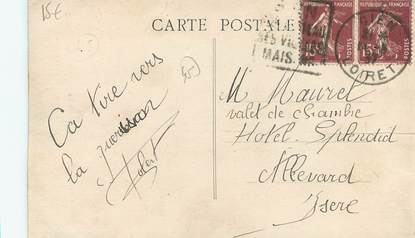 15€
CARTE POSTALE
REPUBLIQUE FRANCAISE
REPUBLIQUE FRANCAISE
POSTES
POSTES
SES VIEILLES
MAISONS
LOIRET
Ca tire vers
la guérison
Robert
M Maurel
valet de chambre
Hotel Splendid
Allevard
Isere